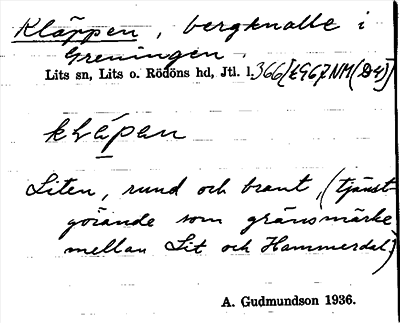 Kläppen, bergknalle i
Greningen.
Lits sn, Lits o. Rödöns hd, Jtl. l.
kläpan
Liten, rund och brant, (tjänst-
görande som gränsmärke
mellan Lit och Hammerdal.)
A. Gudmundson 1936.